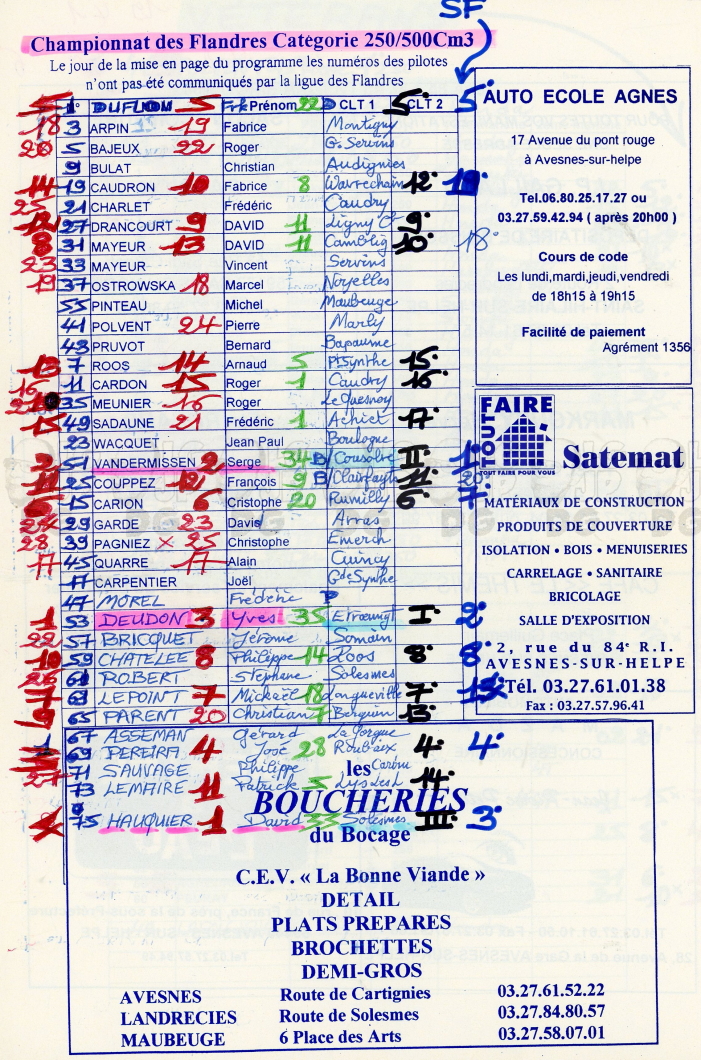 SF
Championnat des Flandres Catégorie 250/500Cm3
Le jour de la mise en page du programme les numéros des pilotes
n'ont pas été communiqués par la ligue des Flandres
5 N° DUFLNOM 5 Prénom 22 CLT 1 5° CLT 2 5°
18 3 ARPIN 19 Fabrice Montigny
20 5 BAJEUX 22 Roger G. Servins
9 BULAT Christian Audignies
14 19 CAUDRON 10 Fabrice 8 Wavrechain 12°
25 21 CHARLET Frédéric Caudry
12 27 DRANCOURT 9 DAVID 11 Ligny Ct 9°
8 31 MAYEUR 13 DAVID 11 Camblig 10° 18°
23 33 MAYEUR Vincent Servins
19 37 OSTROWSKA 18 Marcel Noyelles
55 PINTEAU Michel Maubeuge
41 POLVENT 24 Pierre Marly
43 PRUVOT Bernard Bapaume
13 7 ROOS 14 Arnaud 5 Pt Synthe 15°
16 11 CARDON 15 Roger 1 Caudry 16°
35 MEUNIER 16 Roger Le Quesnoy
15 49 SADAUNE 21 Frédéric 1 Achiet 17°
23 WACQUET Jean Paul Boulogne
2 51 VANDERMISSEN 2 Serge 34 B Cousolre II° 1°
11 25 COUPPEZ 12 François 9 B Clairfayts 11° 20°
15 CARION 6 Cristophe 20 Rumilly 6° 7°
29 GARDE 23 Davis Arras
28 39 PAGNIEZ × 25 Christophe Emerch
17 45 QUARRE 17 Alain Cuincy
17 CARPENTIER Joël Gde Synthe
47 MOREL Frédéric P
1 53 DEUDON 3 Yves 35 Etroeungt I° 2°
22 57 BRICQUET Jérôme Somain
10 59 CHATELEE 8 Philippe 14 Loos 8° 8°
26 61 ROBERT Stéphane Solesmes
7 63 LEPOINT 7 Michaël 18 Longueville 7°
9 65 PARENT 20 Christian 7 Berguin 13°
67 ASSEMAN Gérard La Gorgue
69 PEREIRA 4 José 28 Roubaix 4° 4°
27 71 SAUVAGE Philippe Carbu
73 LEMAIRE 11 Patrick 5 Lys Lez L 14°
75 HAUQUIER 1 David 33 Solesmes III° 3
AUTO ECOLE AGNES
17 Avenue du pont rouge
à Avesnes-sur-helpe
Tel.06.80.25.17.27 ou
03.27.59.42.94 ( après 20h00 )
Cours de code
Les lundi,mardi,jeudi,vendredi
de 18h15 à 19h15
Facilité de paiement
Agrément 1356
TOUT FAIRE
TOUT FAIRE POUR VOUS
Satemat
MATÉRIAUX DE CONSTRUCTION
PRODUITS DE COUVERTURE
ISOLATION • BOIS • MENUISERIES
CARRELAGE • SANITAIRE
BRICOLAGE
SALLE D'EXPOSITION
2, rue du 84e R.I.
AVESNES-SUR-HELPE
Tél. 03.27.61.01.38
Fax : 03.27.57.96.41
les
BOUCHERIES
du Bocage
C.E.V. « La Bonne Viande »
DETAIL
PLATS PREPARES
BROCHETTES
DEMI-GROS
AVESNES Route de Cartignies 03.27.61.52.22
LANDRECIES Route de Solesmes 03.27.84.80.57
MAUBEUGE 6 Place des Arts 03.27.58.07.01